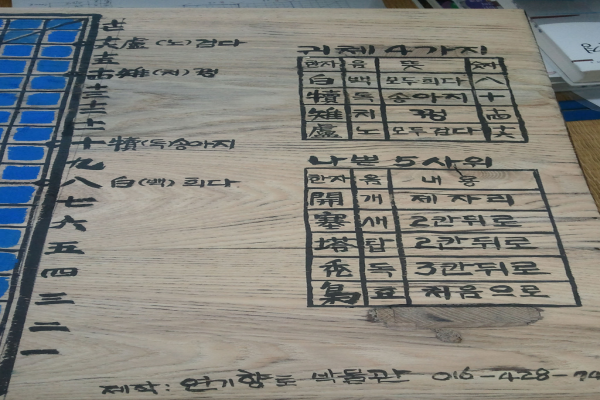 大盧 (노) 검다
五
古雉(치) 꿩
三
二
一
十犢(독송아지
九
八 白(백) 희다
七
六
五
四
三
二
一
귀체 4가지
한자 음 뜻
白 백 모두희다 八
犢 독 송아지 十
雉 치 꿩
盧 노 모두검다
나쁜 5사위
한자 음 내용
開 개 제자리
塞 새 2칸뒤로
塔 탑 2칸뒤로
禿 독 3칸뒤로
梟 효 처음으로
제작: 연기향토 박물관 016-428-